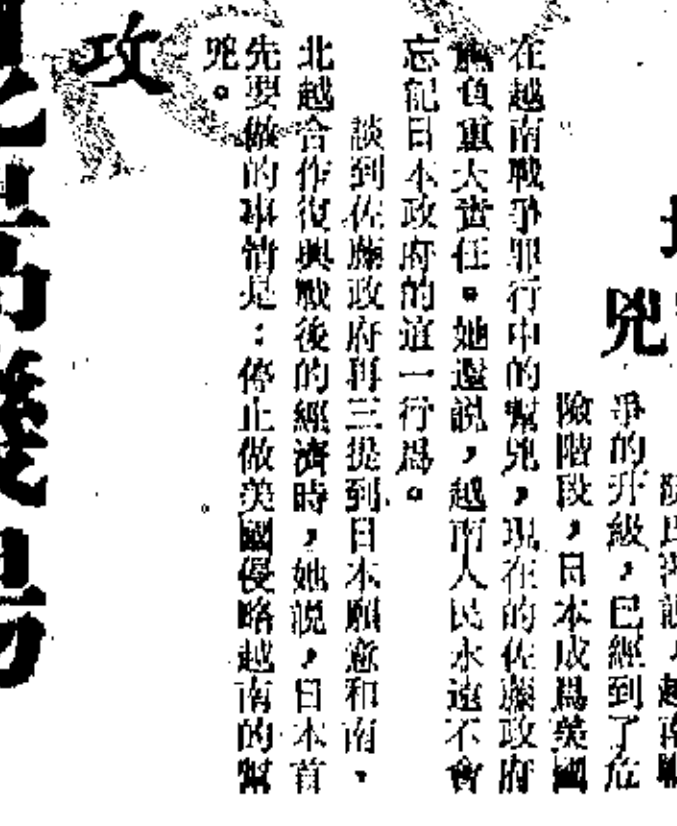 兇
爭的升級，已經到了危
險階段，日本成爲美國
在越南戰爭罪行中的幫兇，現在的佐藤政府
應負重大責任。她還說，越南人民永遠不會
忘記日本政府的這一行爲。
談到佐藤政府再三提到日本願意和南，
北越合作復興戰後的經濟時，她說，日本首
先要做的事情是：停止做美國侵略越南的幫
兇。
攻